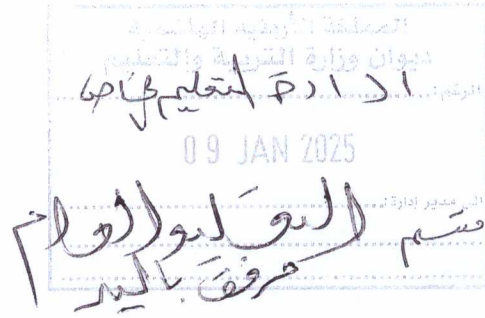 المملكة الأردنية الهاشمية
ديوان وزارة التربية والتعليم
الرقم:
ادارة التعليم الخاص
09 JAN 2025
الى مدير إدارة:
قسم
مرفق باليد